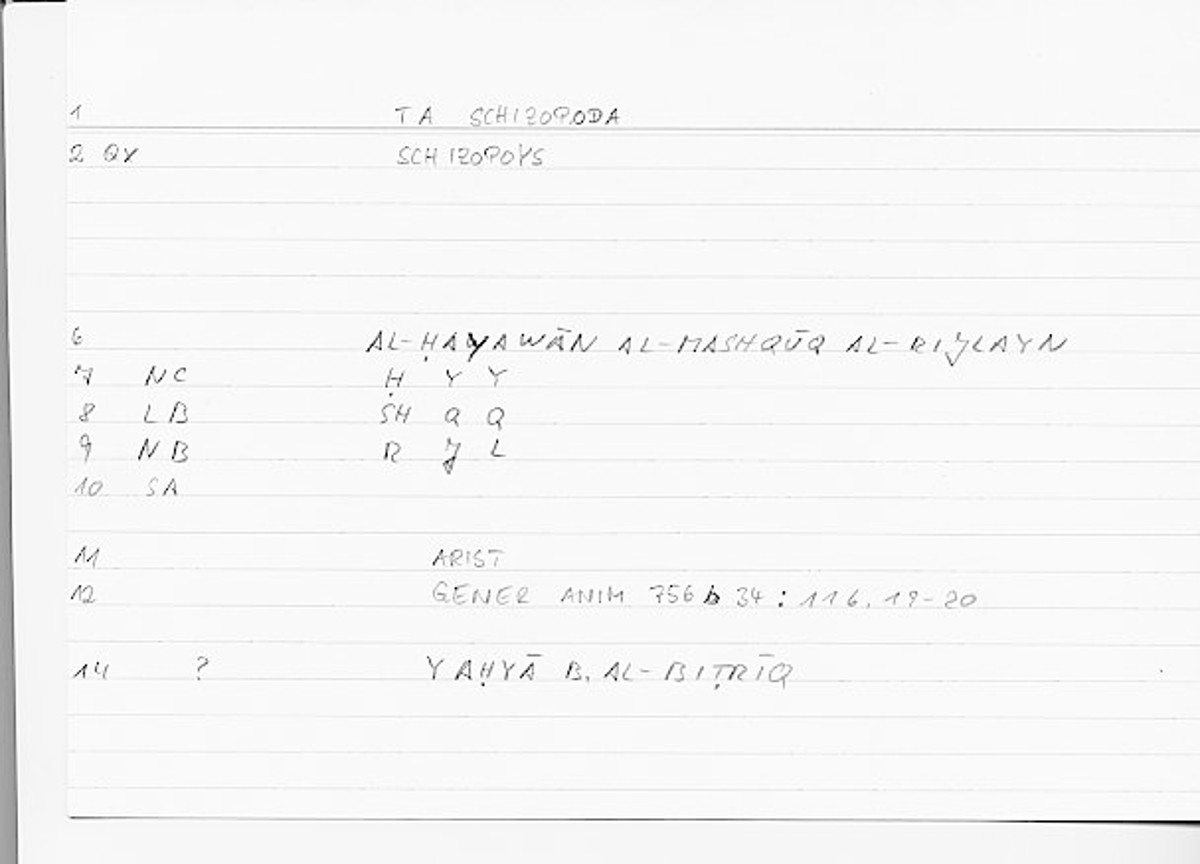 1 TA SCHIZOPODA
2 QY SCHIZOPOYS
6 AL-ḤAYAWĀN AL-MASHQŪQ AL-RIJLAYN
7 NC Ḥ Y Y
8 LB SH Q Q
9 NB R J L
10 SA
11 ARIST
12 GENER ANIM 756 b 34 : 116, 19-20
14 ? YAḤYĀ B. AL-BIṬRĪQ